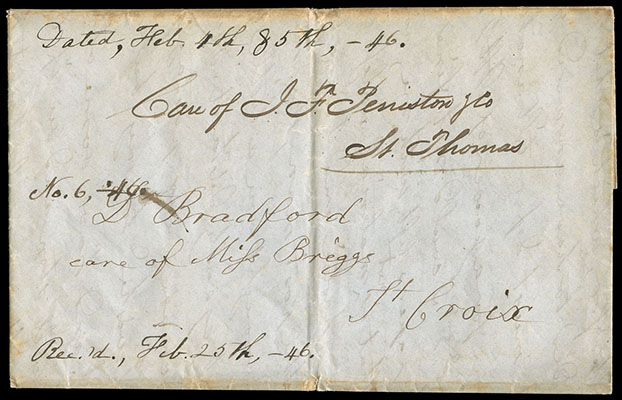 Dated, Feb. 4th, & 5th, -46.
Care of J. F. Peniston & Co
St. Thomas
No. 6, -46.
D Bradford
care of Miss Briggs
St Croix
Rec.'d., Feb. 25th, -46.